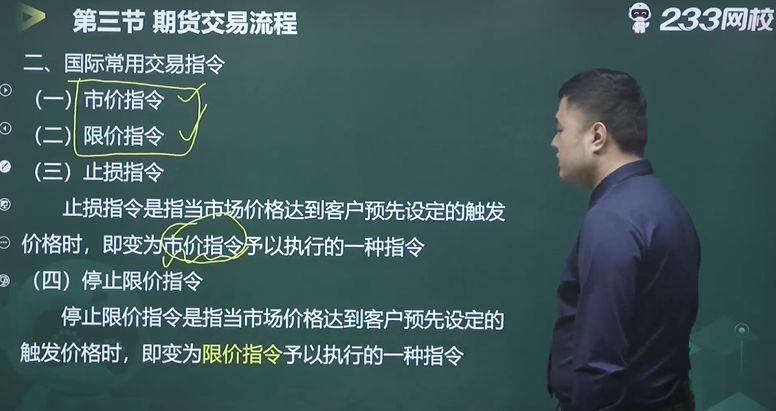 第三节 期货交易流程
233网校
二、国际常用交易指令
（一）市价指令
（二）限价指令
（三）止损指令
止损指令是指当市场价格达到客户预先设定的触发
价格时，即变为市价指令予以执行的一种指令
（四）停止限价指令
停止限价指令是指当市场价格达到客户预先设定的
触发价格时，即变为限价指令予以执行的一种指令